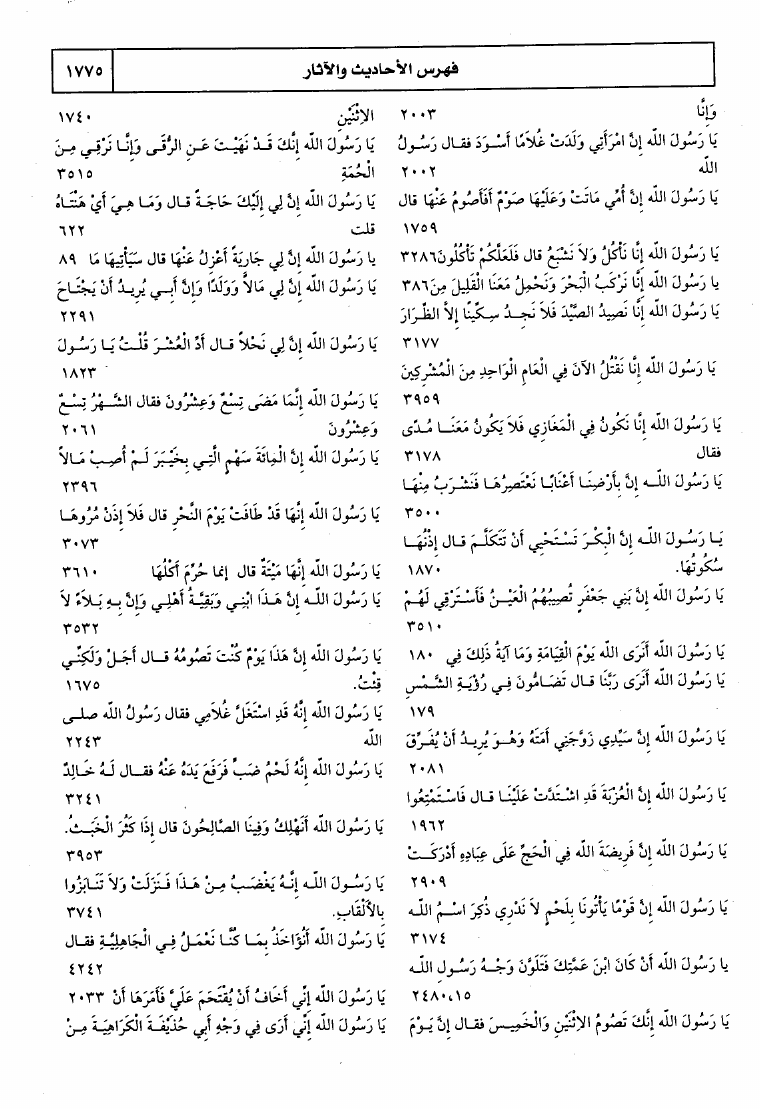 فهرس الأحاديث والآثار ١٧٧٥
وَإِنَّا ٢٠٠٣
يَا رَسُولَ الله إِنَّ امْرَأَتِي وَلَدَتْ غُلَامًا أَسْوَدَ فقال رَسُولُ
الله ٢٠٠٢
يَا رَسُولَ الله إِنَّ أُمِّي مَاتَتْ وَعَلَيْهَا صَوْمٌ أَفَأَصُومُ عَنْهَا قال
١٧٥٩
يَا رَسُولَ الله إِنَّا نَأْكُلُ وَلَا نَشْبَعُ قال فَلَعَلَّكُمْ تَأْكُلُونَ ٣٢٨٦
يا رَسُولَ الله إِنَّا نَرْكَبُ الْبَحْرَ وَنَحْمِلُ مَعَنَا الْقَلِيلَ مِنَ ٣٨٦
يَا رَسُولَ الله إِنَّا نَصِيدُ الصَّيْدَ فَلَا نَجِدُ سِكِّينًا إِلاَّ الظِّرَارَ
٣١٧٧
يَا رَسُولَ الله إِنَّا نَقْتُلُ الآنَ فِي الْعَامِ الْوَاحِدِ مِنَ الْمُشْرِكِينَ
٣٩٥٩
يَا رَسُولَ الله إِنَّا نَكُونُ فِي الْمَغَازِي فَلَا يَكُونُ مَعَنَا مُدًى
فقال ٣١٧٨
يَا رَسُولَ اللـه إِنَّ بِأَرْضِنَا أَعْنَابًا نَعْتَصِرُهَا فَنَشْرَبُ مِنْهَا
٣٥٠٠
يَا رَسُولَ اللـه إِنَّ الْبِكْرَ تَسْتَحْيِي أَنْ تَتَكَلَّمَ قال إِذْنُهَا
سُكُوتُهَا. ١٨٧٠
يَا رَسُولَ الله إِنَّ بَنِي جَعْفَرٍ تُصِيبُهُمُ الْعَيْنُ فَأَسْتَرْقِي لَهُمْ
٣٥١٠
يَا رَسُولَ الله أَنَرَى الله يَوْمَ الْقِيَامَةِ وَمَا آيَةُ ذَلِكَ فِي ١٨٠
يَا رَسُولَ الله أَنَرَى رَبَّنَا قال تَضَامُّونَ فِي رُؤْيَةِ الشَّمْسِ
١٧٩
يَا رَسُولَ الله إِنَّ سَيِّدِي زَوَّجَنِي أَمَتَهُ وَهُوَ يُرِيدُ أَنْ يُفَرِّقَ
٢٠٨١
يَا رَسُولَ الله إِنَّ الْعُزْبَةَ قَدِ اشْتَدَّتْ عَلَيْنَا قال فَاسْتَمْتِعُوا
١٩٦٢
يَا رَسُولَ الله إِنَّ فَرِيضَةَ الله فِي الْحَجِّ عَلَى عِبَادِهِ أَدْرَكَتْ
٢٩٠٩
يَا رَسُولَ الله إِنَّ قَوْمًا يَأْتُونَا بِلَحْمٍ لاَ نَدْرِي ذُكِرَ اسْمُ اللـه
٣١٧٤
يا رَسُولَ الله أَنْ كَانَ ابْنَ عَمَّتِكَ فَتَلَوَّنَ وَجْهُ رَسُولِ الله
٢٤٨٠،١٥
يَا رَسُولَ الله إِنَّكَ تَصُومُ الِاثْنَيْنِ وَالْخَمِيسَ فقال إِنَّ يَوْمَ
الِاثْنَيْنِ ١٧٤٠
يَا رَسُولَ الله إِنَّكَ قَدْ نَهَيْتَ عَنِ الرُّقَى وَإِنَّا نَرْقِي مِنَ
الْحُمَةِ ٣٥١٥
يَا رَسُولَ الله إِنَّ لِي إِلَيْكَ حَاجَةً قال وَمَا هِيَ أَيْ هَنْتَاهُ
قلت ٦٢٢
يا رَسُولَ الله إِنَّ لِي جَارِيَةً أَعْزِلُ عَنْهَا قال سَيَأْتِيهَا مَا ٨٩
يَا رَسُولَ الله إِنَّ لِي مَالاً وَوَلَدًا وَإِنَّ أَبِي يُرِيدُ أَنْ يَجْتَاحَ
٢٢٩١
يَا رَسُولَ الله إِنَّ لِي نَحْلاً قال أَدِّ الْعُشْرَ قُلْتُ يَا رَسُولَ
١٨٢٣
يَا رَسُولَ الله إِنَّمَا مَضَى تِسْعٌ وَعِشْرُونَ فقال الشَّهْرُ تِسْعٌ
وَعِشْرُونَ ٢٠٦١
يَا رَسُولَ الله إِنَّ الْمِائَةَ سَهْمٍ الَّتِي بِخَيْبَرَ لَمْ أُصِبْ مَالاً
٢٣٩٦
يَا رَسُولَ الله إِنَّهَا قَدْ طَافَتْ يَوْمَ النَّحْرِ قال فَلَا إِذَنْ مُرُوهَا
٣٠٧٣
يَا رَسُولَ الله إِنَّهَا مَيْتَةٌ قال إنما حُرِّمَ أَكْلُهَا ٣٦١٠
يَا رَسُولَ اللـه إِنَّ هَذَا ابْنِي وَبَقِيَّةُ أَهْلِي وَإِنَّ بِهِ بَلَاءً لاَ
٣٥٣٢
يَا رَسُولَ الله إِنَّ هَذَا يَوْمٌ كُنْتَ تَصُومُهُ قال أَجَلْ وَلَكِنِّي
قِئْتُ. ١٦٧٥
يَا رَسُولَ الله إِنَّهُ قَدِ اسْتَغَلَّ غُلَامِي فقال رَسُولُ الله صلى
الله ٢٢٤٣
يَا رَسُولَ الله إِنَّهُ لَحْمُ ضَبٍّ فَرَفَعَ يَدَهُ عَنْهُ فقال لَهُ خَالِدٌ
٣٢٤١
يَا رَسُولَ الله أَنَهْلِكُ وَفِينَا الصَّالِحُونَ قال إِذَا كَثُرَ الْخَبَثُ.
٣٩٥٣
يَا رَسُولَ اللـه إِنَّهُ يَغْضَبُ مِنْ هَذَا فَنَزَلَتْ وَلَا تَنَابَزُوا
بِالأَلْقَابِ. ٣٧٤١
يَا رَسُولَ الله أَنُؤَاخَذُ بِمَا كُنَّا نَعْمَلُ فِي الْجَاهِلِيَّةِ فقال
٤٢٤٢
يَا رَسُولَ الله إِنِّي أَخَافُ أَنْ يُقْتَحَمَ عَلَيَّ فَأَمَرَهَا أَنْ ٢٠٣٣
يَا رَسُولَ الله إِنِّي أَرَى فِي وَجْهِ أَبِي حُذَيْفَةَ الْكَرَاهِيَةَ مِنْ